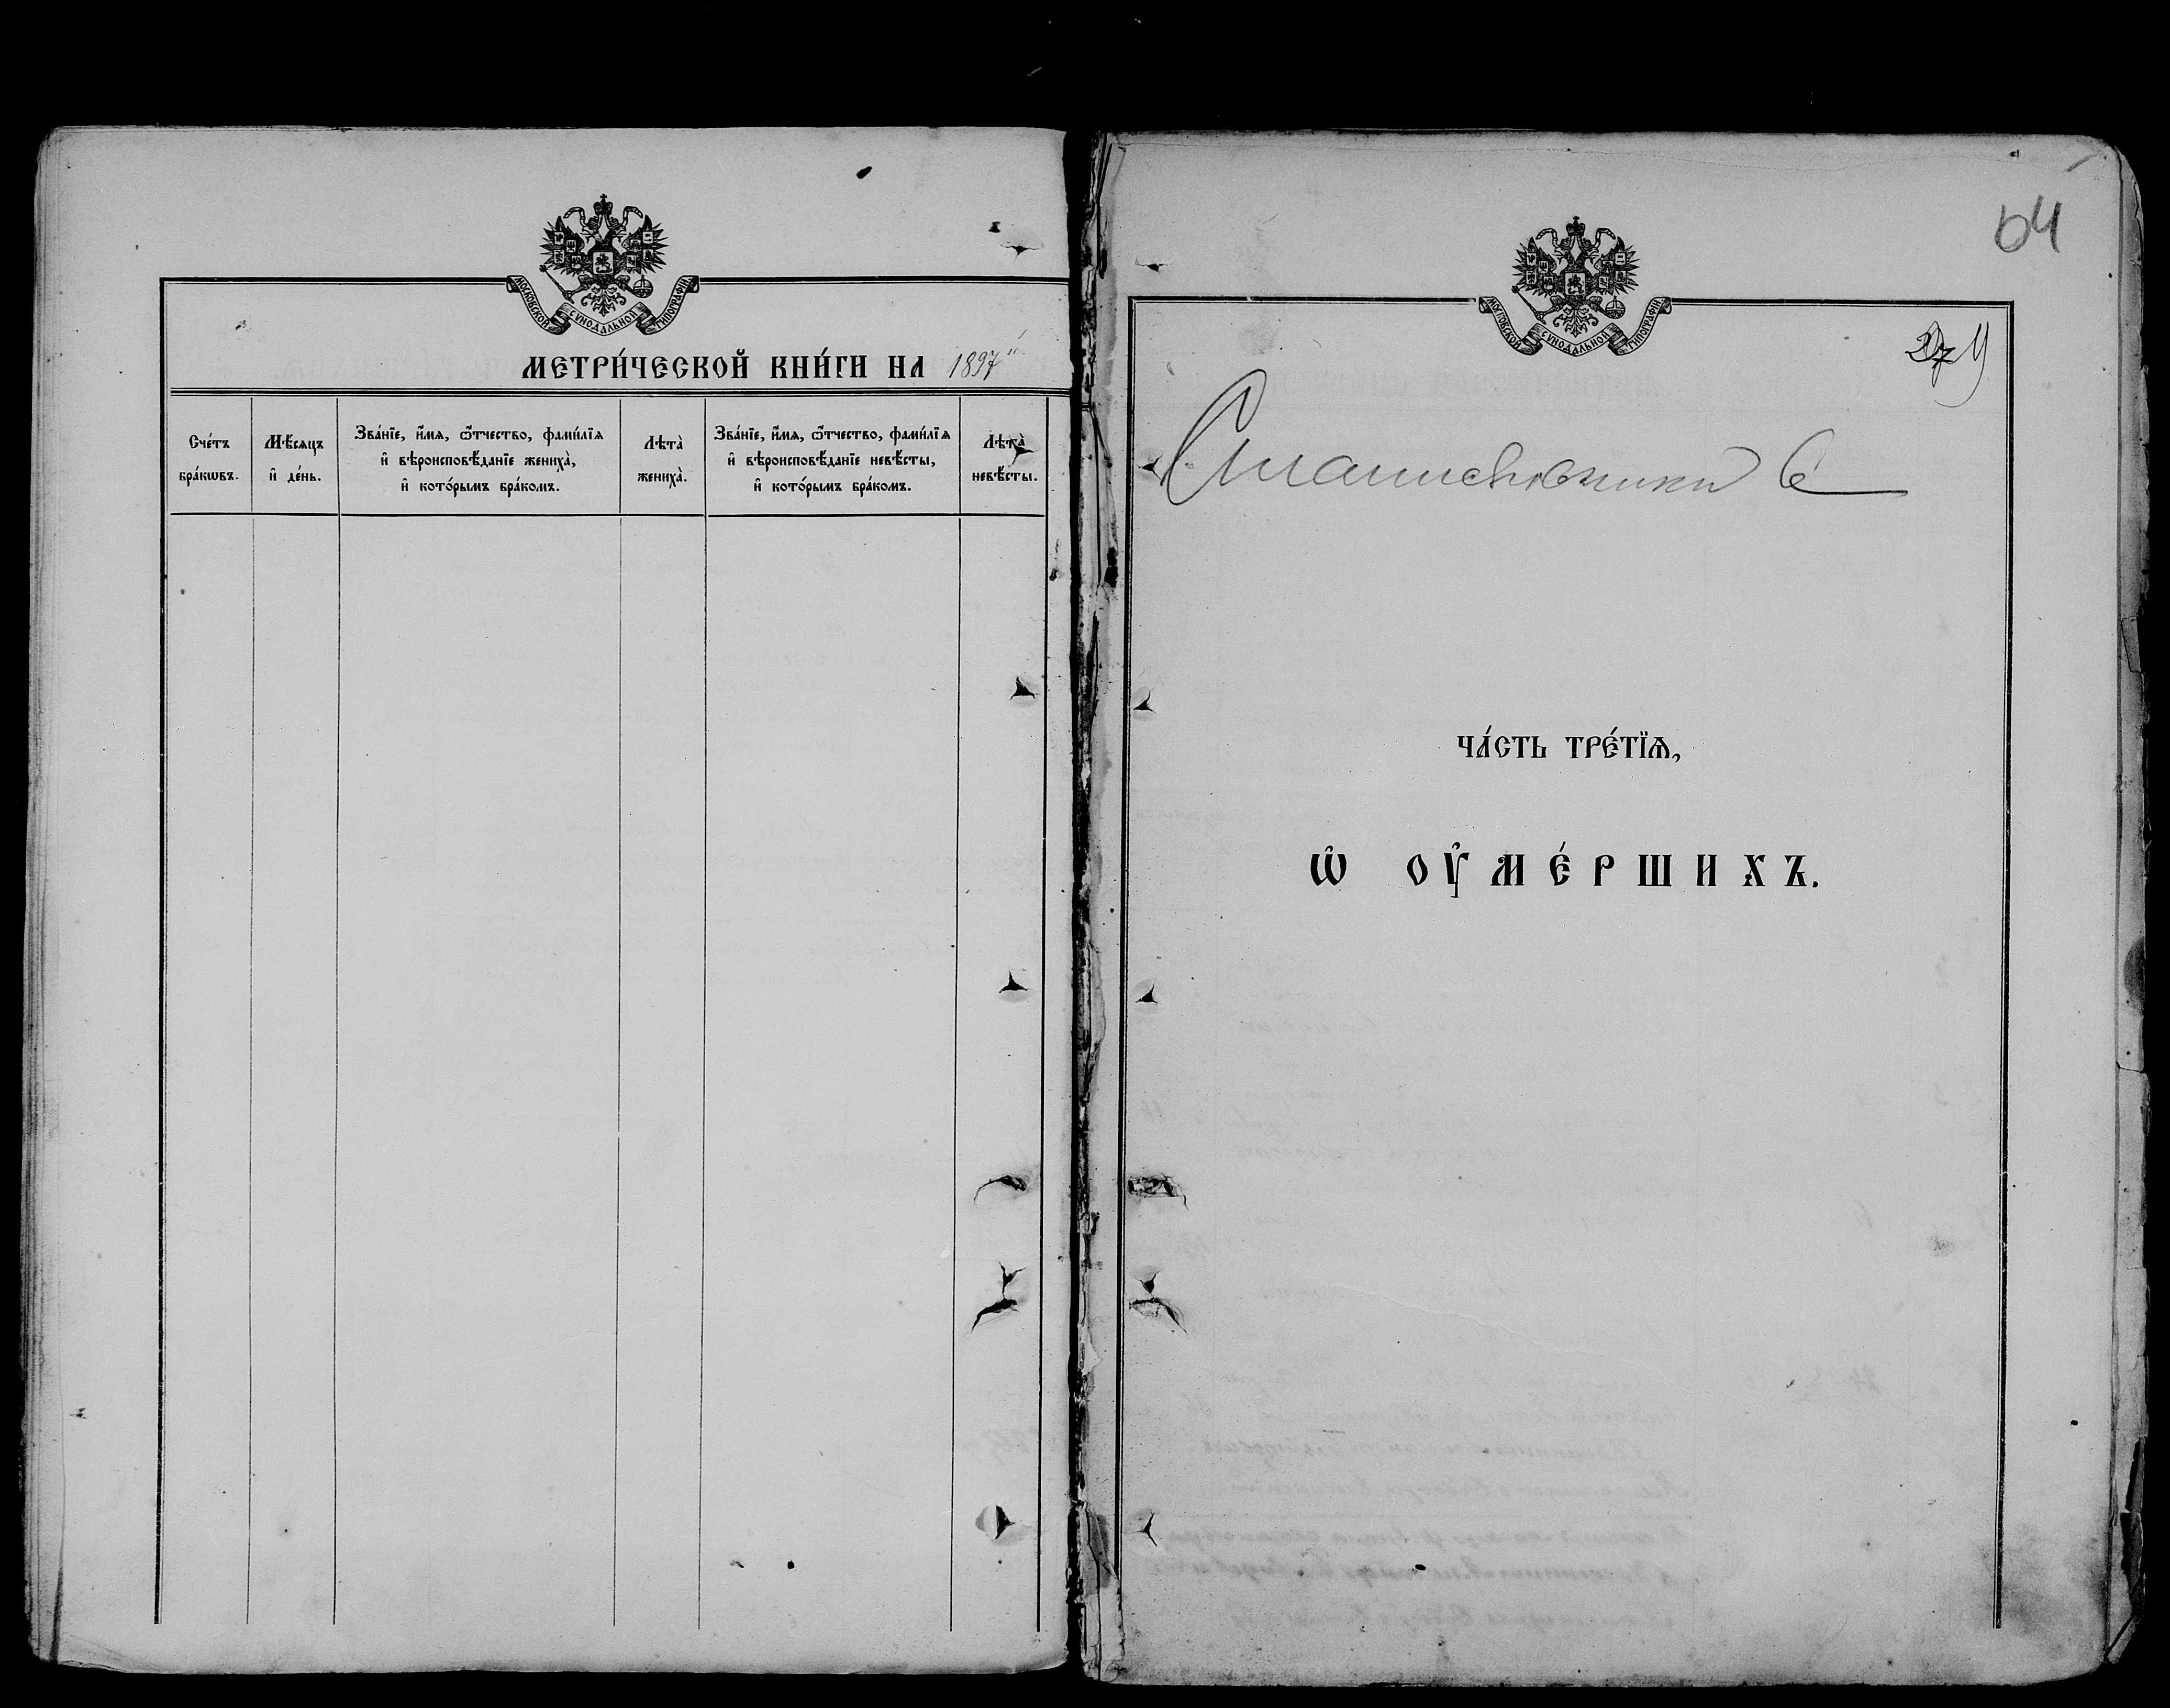 МОСКОВСКОЙ СѴНОДАЛЬНОЙ ТИПОГРАФІИ
МЕТРИ́ЧЕСКОЙ КНИ́ГИ НА 1897
Сче́тъ бра́кѡвъ.
Мѣ́сяцъ и҆ де́нь.
Зва́нїе, и҆́мя, ѻ҆́тчество, фами́лїя
и҆ вѣроисповѣ́данїе жениха̀,
и҆ кото́рымъ бра́комъ.
Лѣта̀ жениха̀.
Зва́нїе, и҆́мя, ѻ҆́тчество, фами́лїя
и҆ вѣроисповѣ́данїе невѣ́сты,
и҆ кото́рымъ бра́комъ.
Лѣта̀ невѣ́сты.
64
МОСКОВСКОЙ СѴНОДАЛЬНОЙ ТИПОГРАФІИ
ЧА́СТЬ ТРЕ́ТЇѦ,
Ѡ҆ ОУ҆МЕ́РШИХЪ.